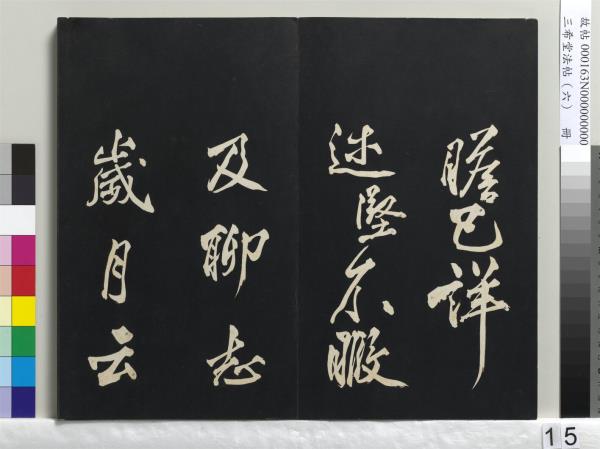 瞻已詳
述堅不暇
及聊志
歲月云
故帖 000163N000000000
三希堂法帖（六） 冊
15